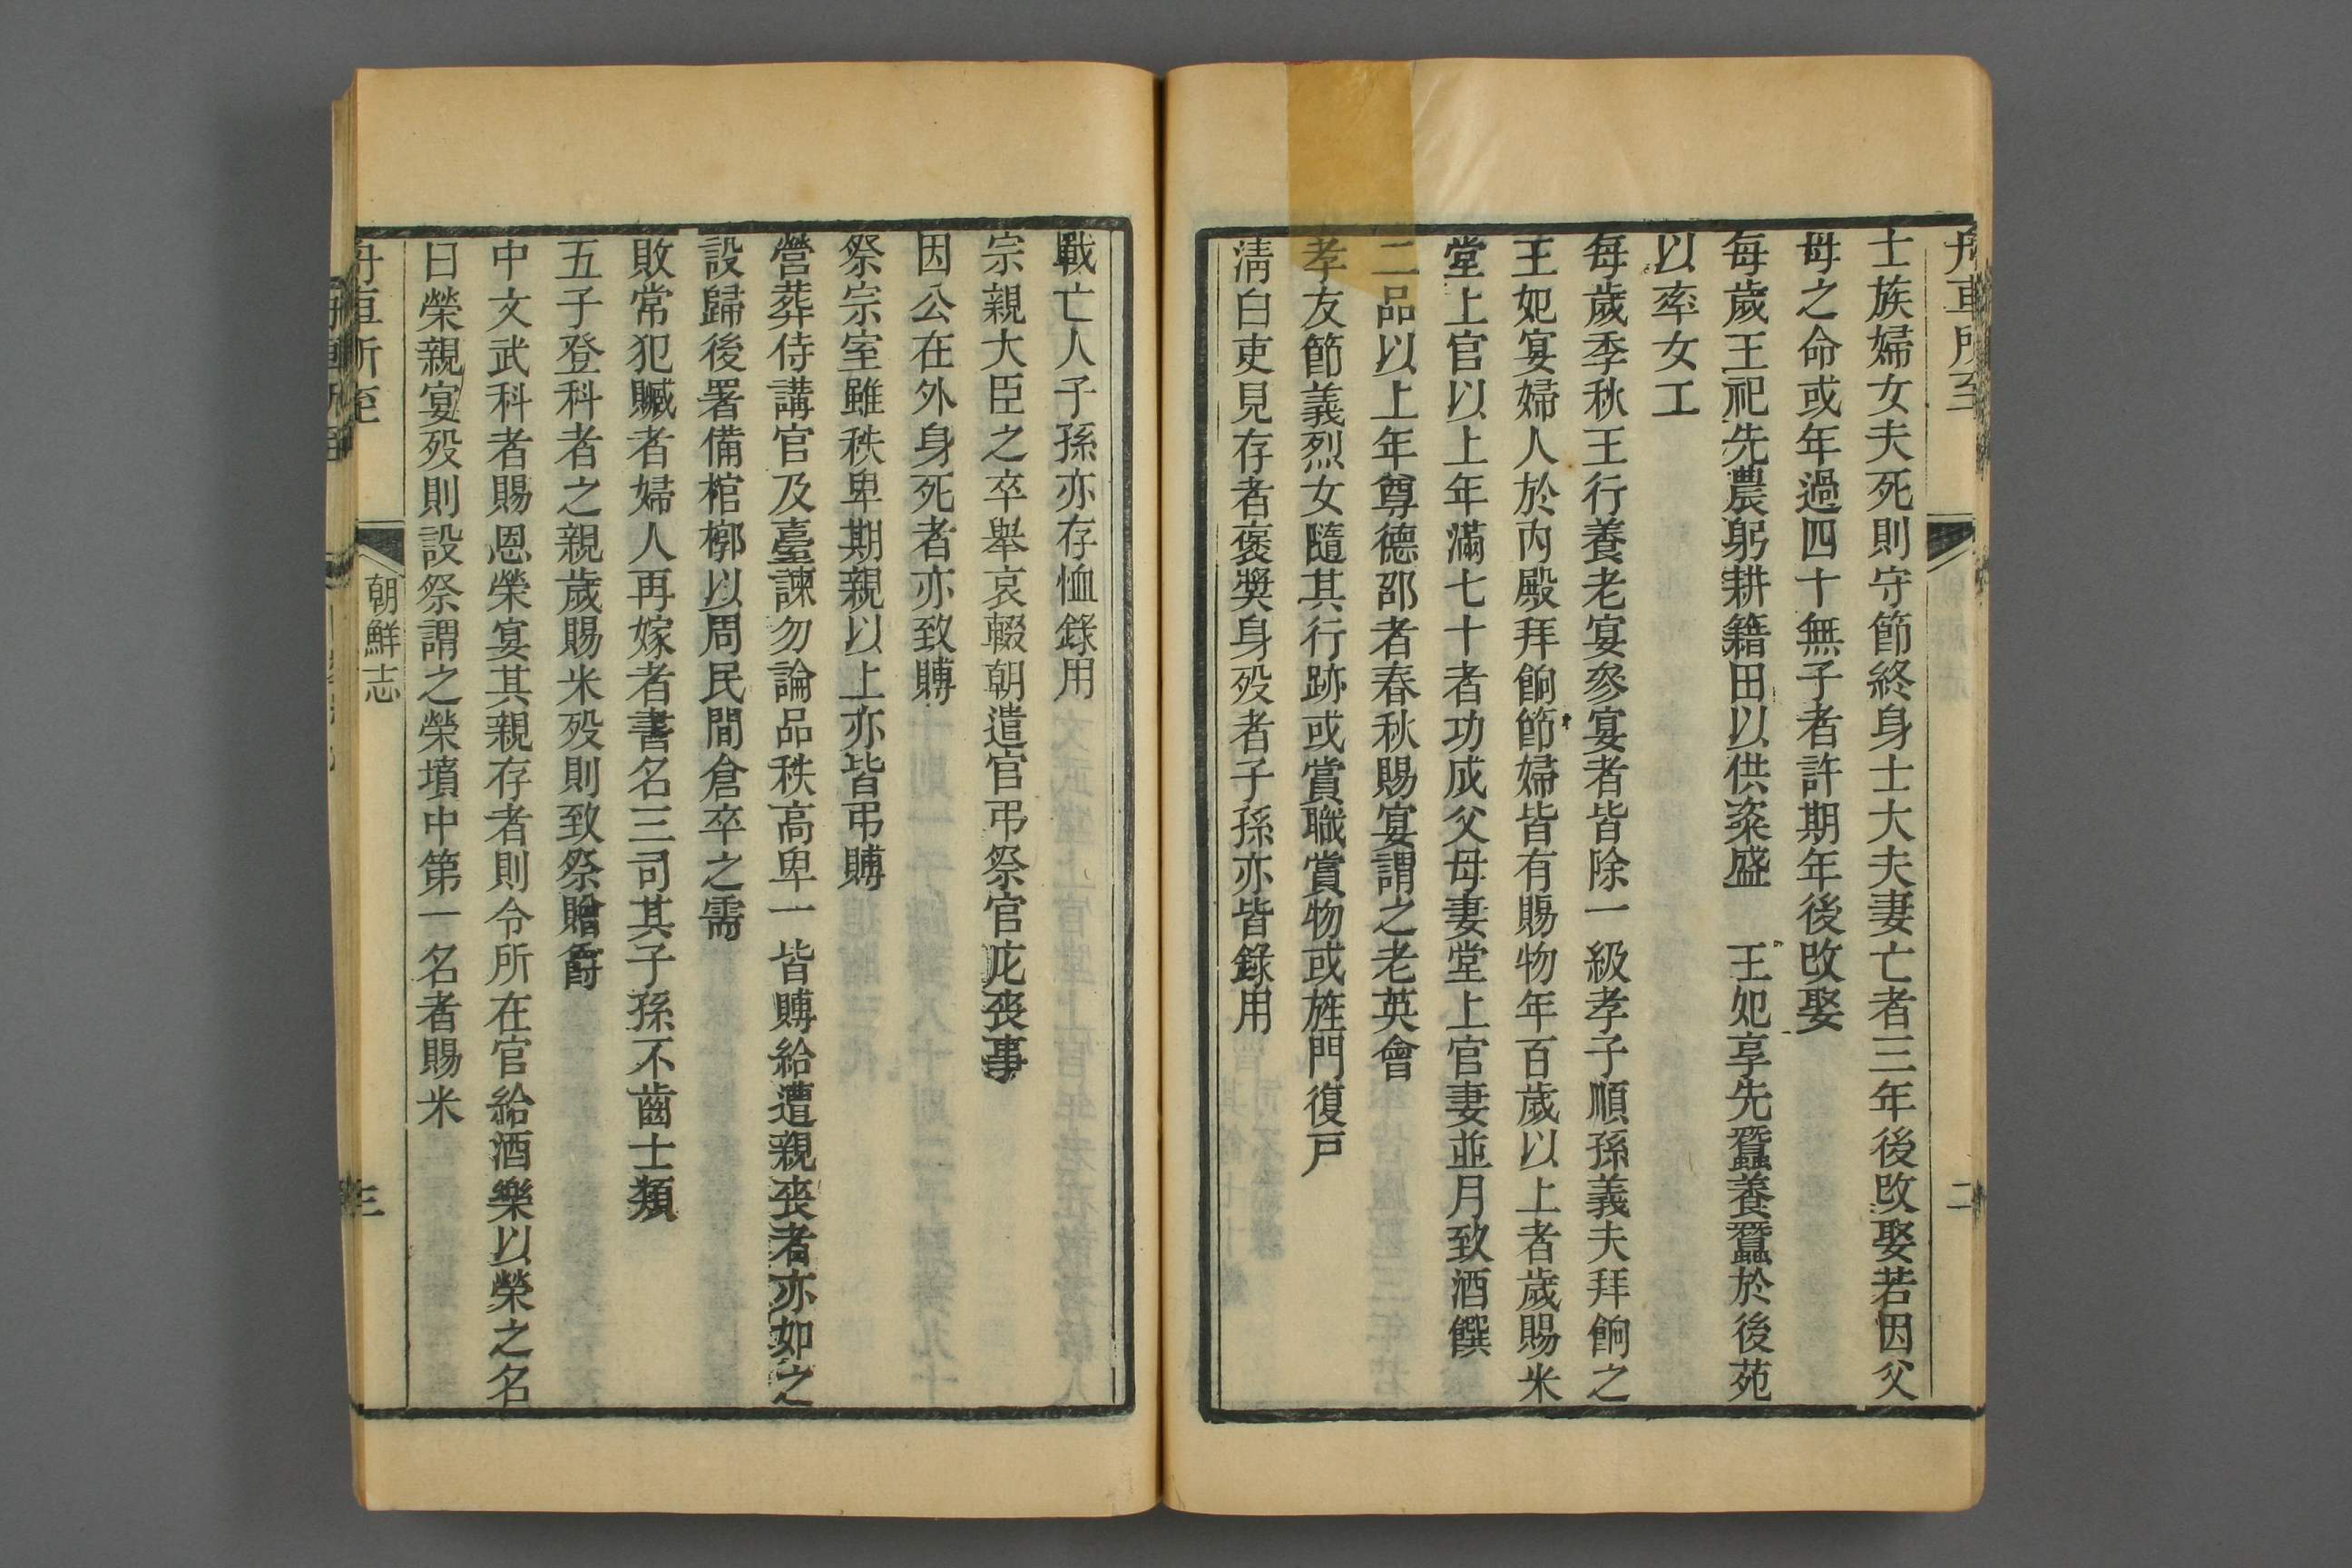 舟車所至
二
士族婦女夫死則守節終身士大夫妻亡者三年後改娶若因父
母之命或年過四十無子者許期年後改娶
每歲王祀先農躬耕籍田以供粢盛　王妃享先蠶養蠶於後苑
以率女工
每歲季秋王行養老宴參宴者皆除一級孝子順孫義夫拜餉之
王妃宴婦人於內殿拜餉節婦皆有賜物年百歲以上者歲賜米
堂上官以上年滿七十者功成父母妻堂上官妻並月致酒饌
二品以上年尊德邵者春秋賜宴謂之老英會
孝友節義烈女隨其行跡或賞職賞物或旌門復戶
淸白吏見存者褒奬身歿者子孫亦皆錄用
戰亡人子孫亦存恤錄用
宗親大臣之卒舉哀輟朝遣官弔祭官庀喪事
因公在外身死者亦致賻
祭宗室雖秩卑期親以上亦皆弔賻
營葬侍講官及臺諫勿論品秩高卑一皆賻給遭親喪者亦如之
設歸後署備棺槨以周民間倉卒之需
敗常犯贓者婦人再嫁者書名三司其子孫不齒士類
五子登科者之親歲賜米歿則致祭贈爵
中文武科者賜恩榮宴其親存者則令所在官給酒樂以榮之名
曰榮親宴歿則設祭謂之榮墳中第一名者賜米
舟車所至
朝鮮志
三